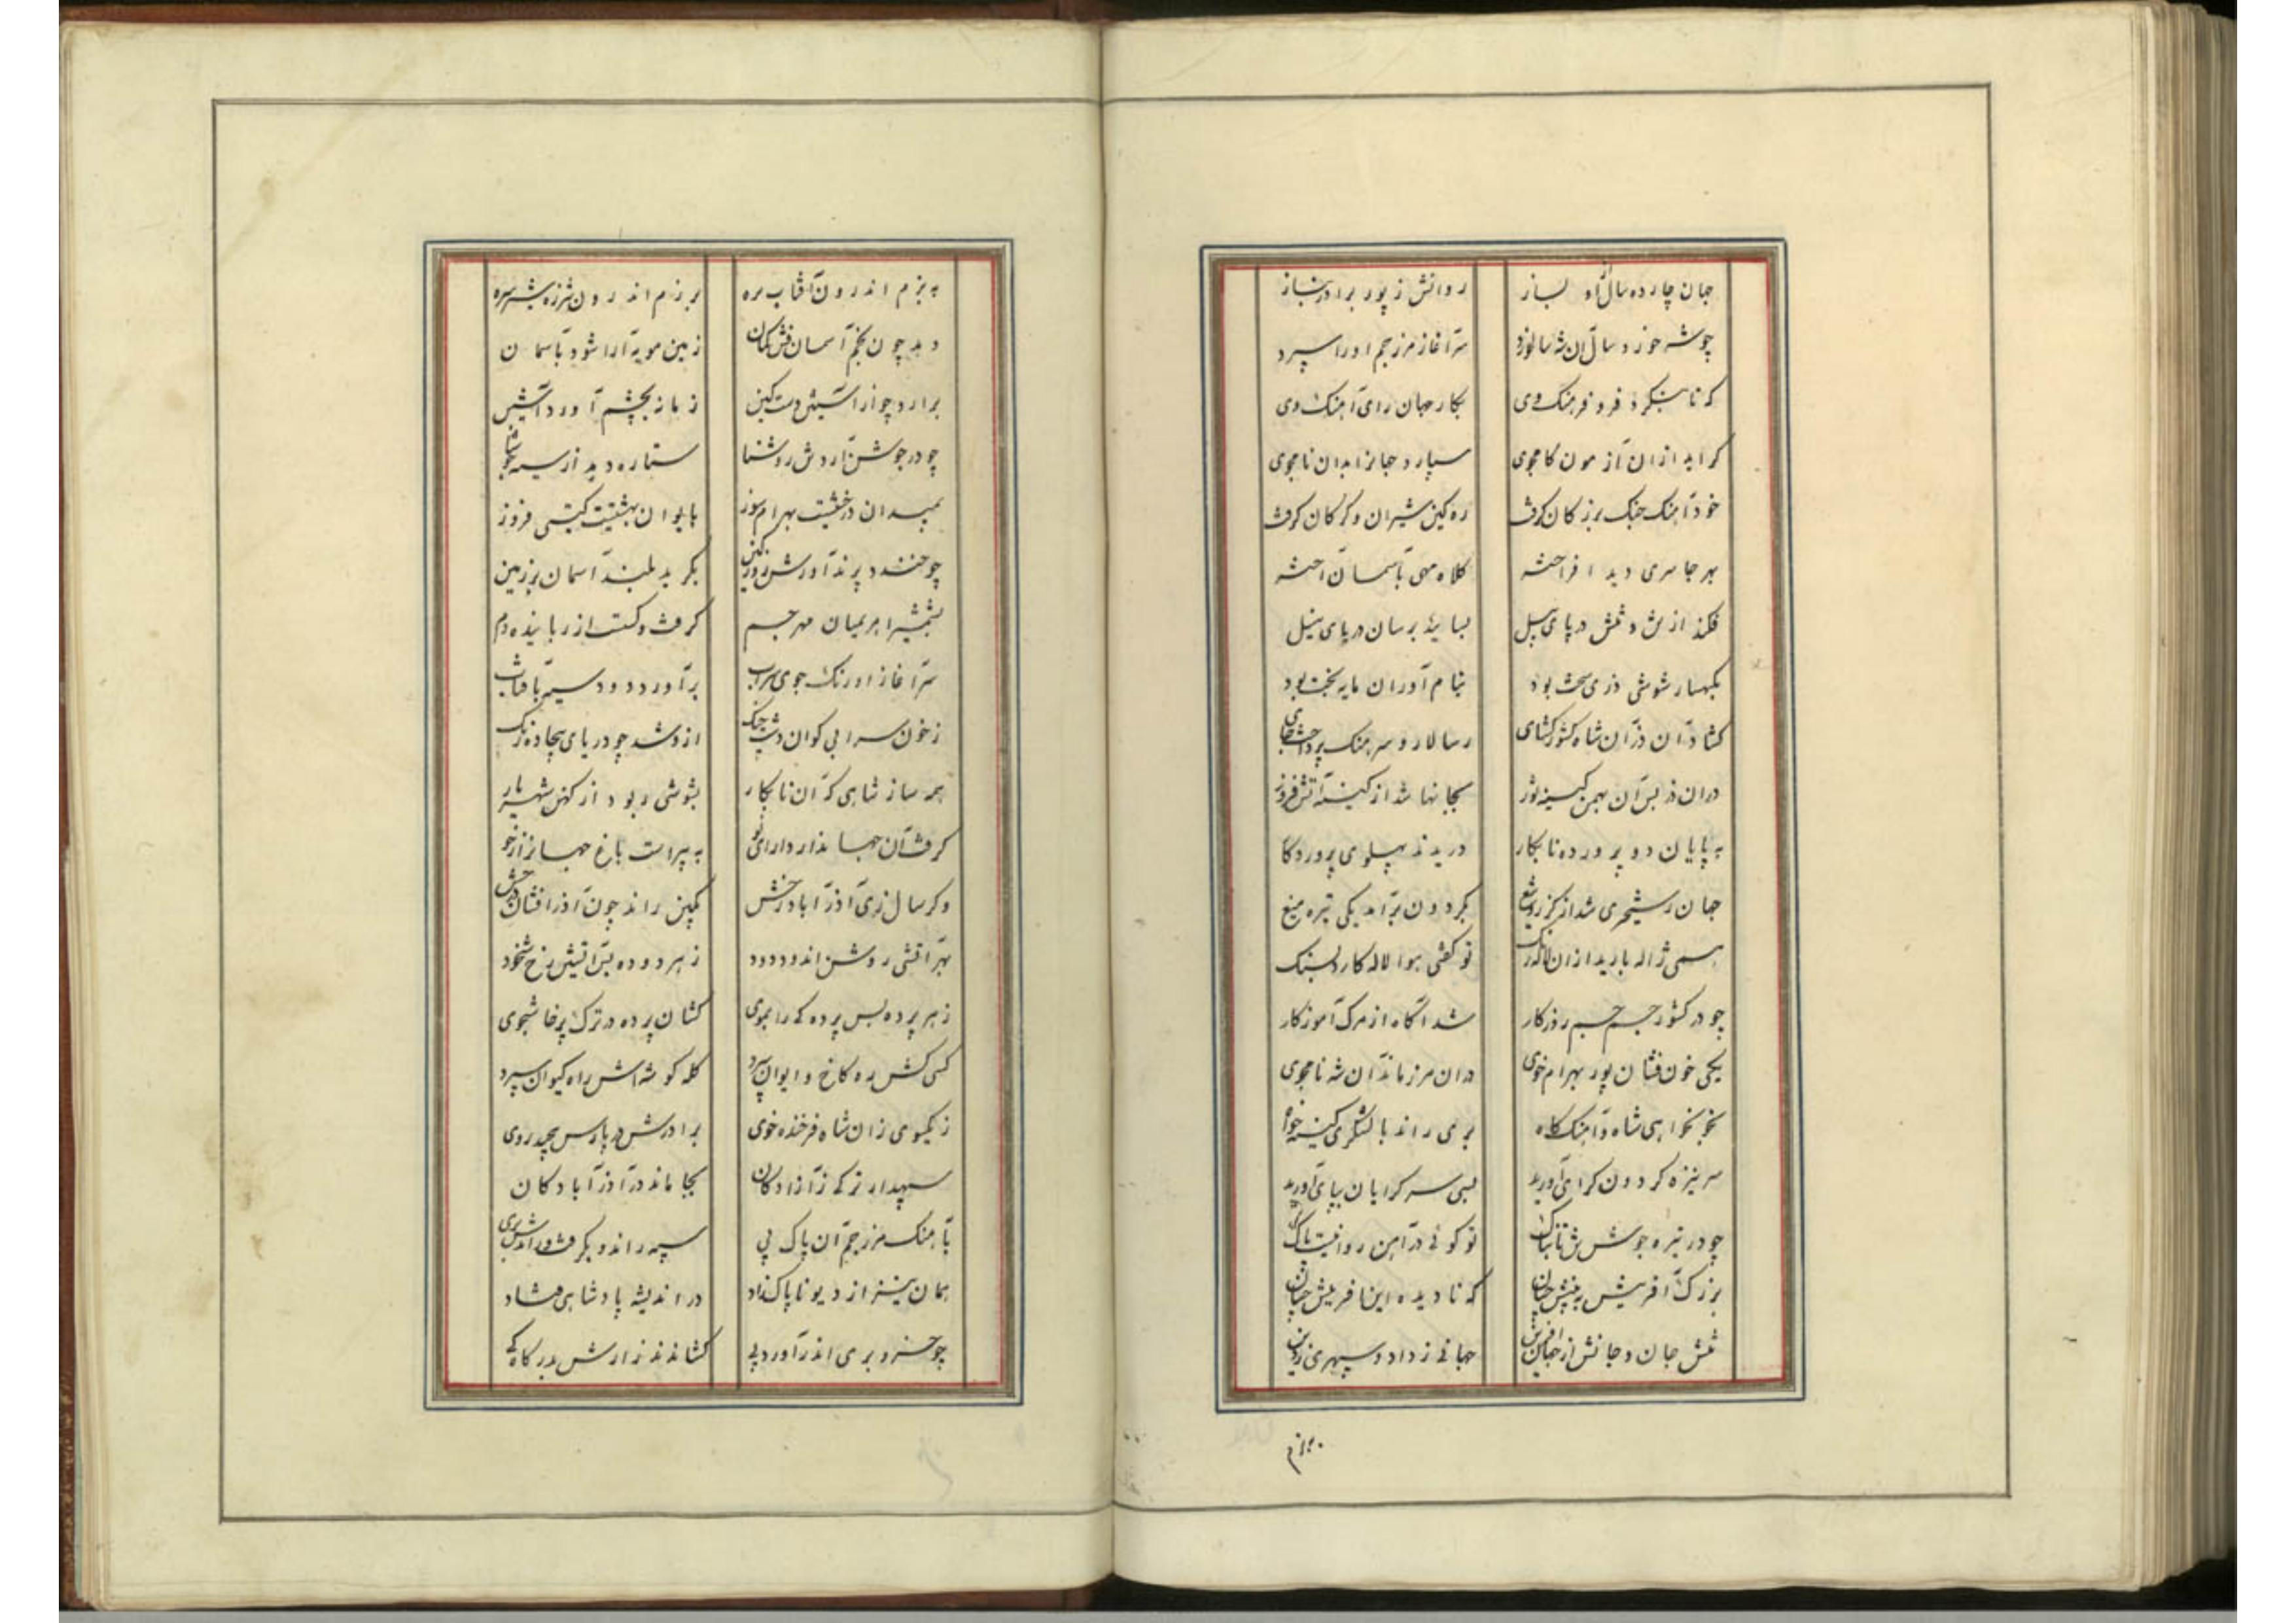 جهان چارده سال او بساز روانش ز پور برادر بناز
چو شه خوزد سال آن شه سالورد سرآغاز مرز جم او را سپرد
که تا بنگرد فر و فرهنگ وی بکار جهان رای آهنگ وی
گراید ازان آزمون کامجوی سپارد جهانرا بدان نامجوی
خود آهنگ جنگ بزرگان گرفت ره کین شیران و گرگان گرفت
بهر جا سری دید افراخته کلاه مهی بآسمان آخته
فکند از تنش در پای پیل بسایید برسان دریای نیل
بکهسار شوشی دزی سخت بود بنام آوران مایه بخت بود
گشاد آن دز آن شاه کشور گشای ز سالار و سرهنگ پرداخت جای
دران دز بس آن بهمن کینه توز بجانها شد از کینه آتش فروز
به پایان دو پرورده نابکار دریدند پهلوی پروردگار
جهان رستخیزی شد از گرز و تیغ بگردون برآمد یکی تیره میغ
همی ژاله بارید ازان لاله رنگ تو گفتی هوا لاله کارد بسنگ
چو در کشور جم جم روزگار شد آگاه از مرگ آموزگار
یکی خون فشان پور بهرام خوی دران مرز ماند آن شه نامجوی
بخونخواهی شاه و آهنگ گاه بری راند با لشکری کینه خواه
سر نیزه گردون گرای آورید بسی سرگرایان بپای آورید
چو در تیره جوشن تن تابناک تو گوئی در آهن روانیست پاک
بزرگ آفرینش به بینش جهان که نادیده این آفرینش جهان
تنش جان و جانش از جهان آفرین جهانی ز داد و سپهری ز دین
بهزم
به بزم اندرون آفتاب بره برزم اندرون شرزه شیر سره
دهد چون بخم آسمانفش کمان زمین مویه آرا شود بآسمان
برآرد چو از آستین دست کین زمانه بچشم آورد آستین
چو در جوشن آرد تن روشنا ستاره دهد از سیه
بمیدان درخشیست بهرام سوز بایوان بهشتیست گیتی فروز
چو خندد پرند آورش روز کین بگرید بلند آسمان بر زمین
بشمشیر ابر میان مهر جم گرفت و گسست اژدها بنده دم
سرآغاز اورنگ جوی سراب برآورد دود سیه بآفتاب
ز خون سرابی گوان دشت جنگ ازو شد چو دریای بیجاده رنگ
همه ساز شاهی که آن نابکار بشوشی ربود از کهن شهریار
گرفت آن جهاندار دارای نو به پیراست باغ جهانرا ز خو
دگر سال زی آذرآباد رخش بکین راند چون آذرافشان درخش
بهر آتشی روشن اندود دود ز هر دوده بر آتیش رخ شخود
ز هر پرده بس پردگی را بموی کشان پرده در ترک پرخاشجوی
کسی کش به کاخ و ایوان سپرد کله گوشه اش راه کیوان سپرد
ز یکسوی زان شاه فرخنده خوی برادرش در پارس پیچید روی
سپهدار ترکی ز آزادگان بجا ماند در آذرآبادگان
بآهنگ مرز جم آن پاک پی سپه راند و بگرفت و راندش بری
همان نیز از دیو ناپاک زاد در اندیشه پادشاهی فتاد
چو خسرو بری اندر آورد پی کشاندند زارش بدرگاه کی